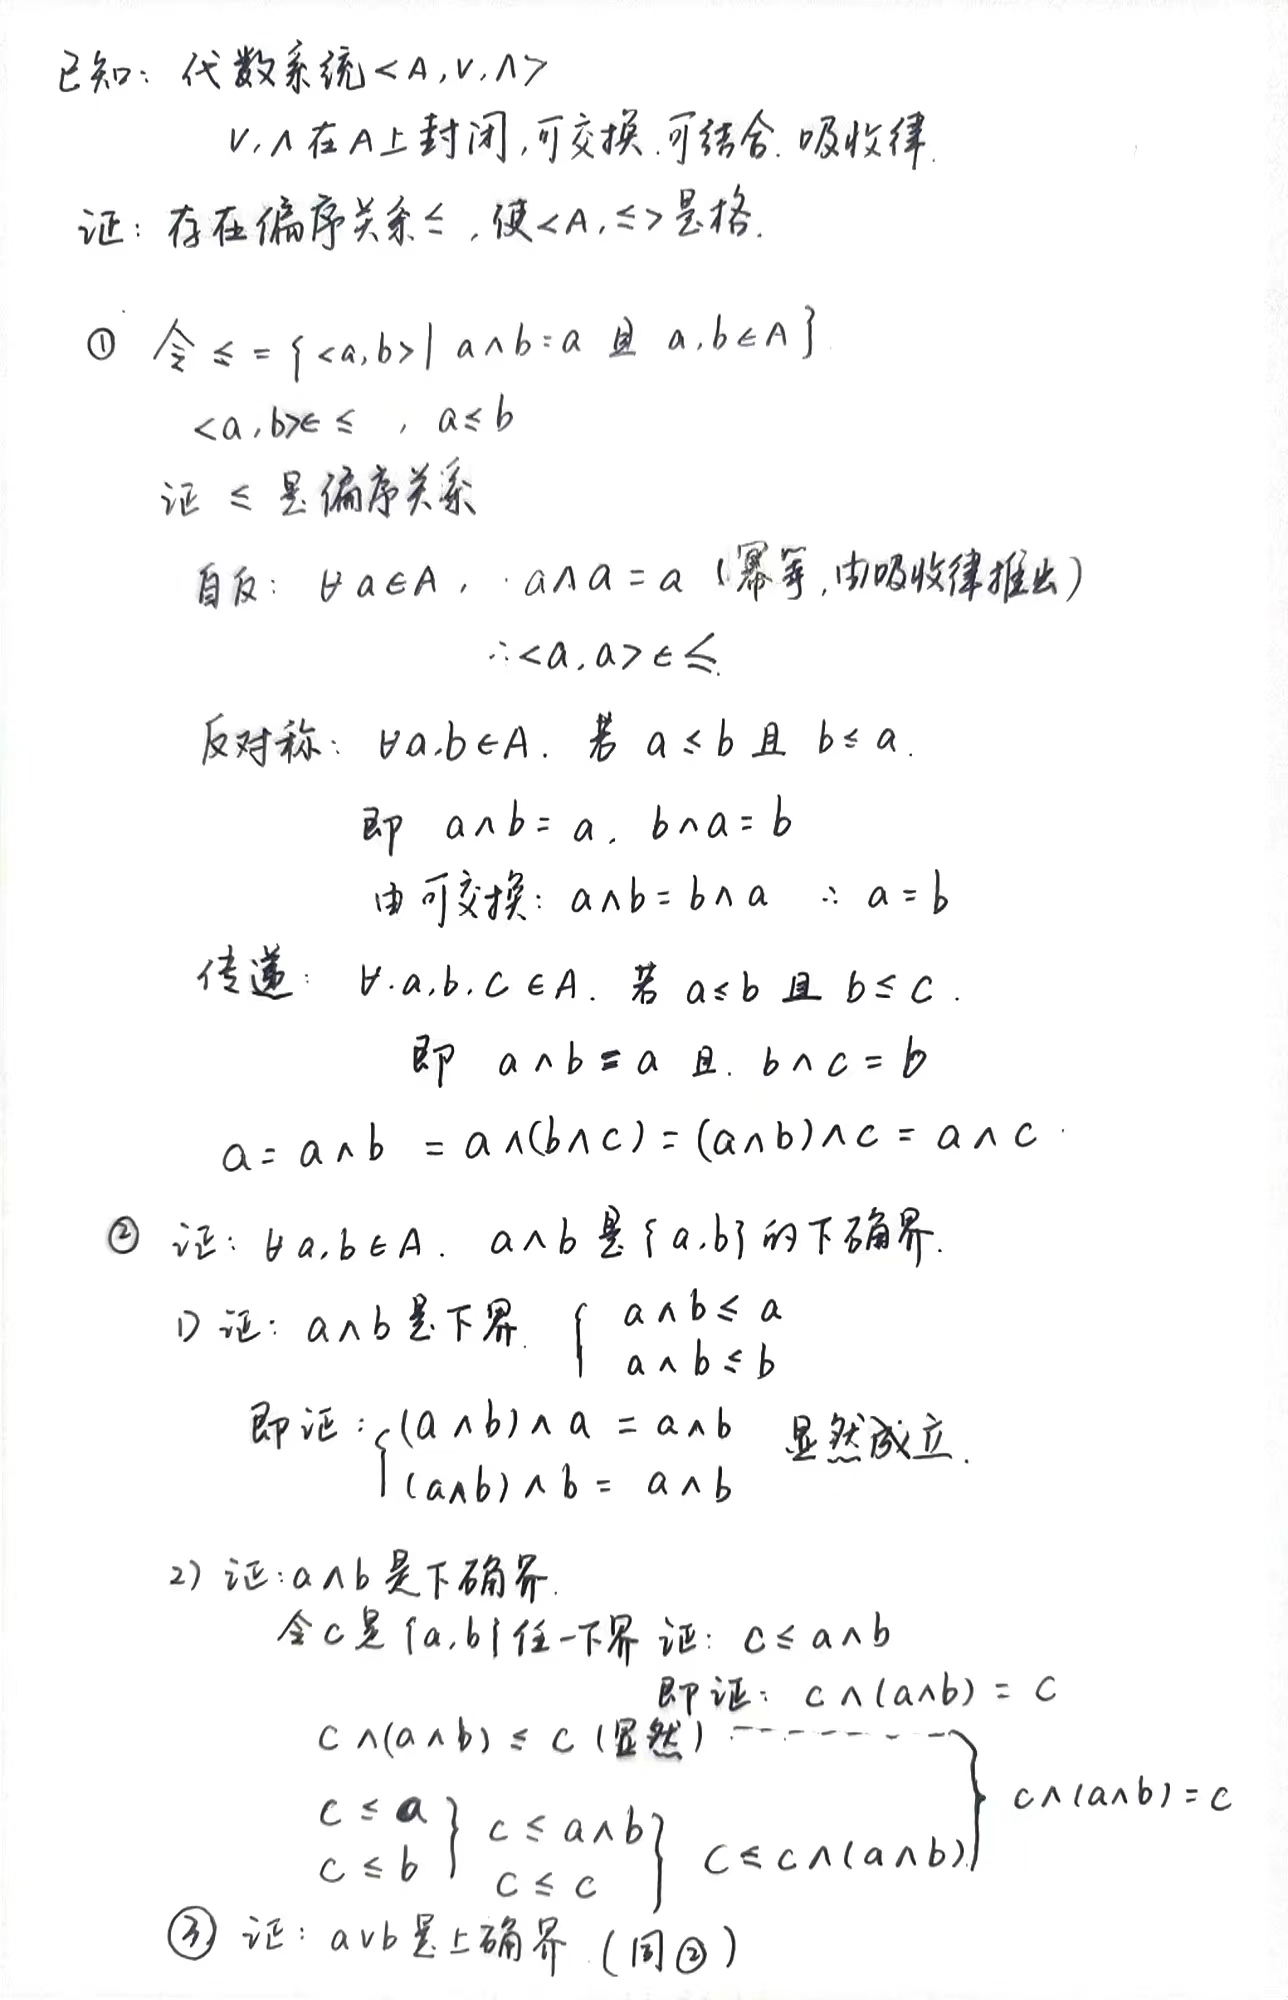 已知：代数系统<A,∨,∧>
∨,∧在A上封闭,可交换.可结合.吸收律.
证：存在偏序关系≤,使<A,≤>是格.
① 令≤={<a,b>|a∧b=a 且 a,b∈A}
<a,b>∈≤,a≤b
证 ≤ 是偏序关系
自反：∀a∈A,a∧a=a(幂等,由吸收律推出)
∴<a,a>∈≤.
反对称：∀a,b∈A.若 a≤b 且 b≤a.
即 a∧b=a.b∧a=b
由可交换：a∧b=b∧a ∴ a=b
传递：∀.a,b,c∈A.若 a≤b 且 b≤c.
即 a∧b=a 且.b∧c=b
a=a∧b=a∧(b∧c)=(a∧b)∧c=a∧c
② 证：∀a,b∈A.a∧b是{a,b}的下确界.
1) 证：a∧b是下界.{ a∧b≤a
a∧b≤b
即证：{ (a∧b)∧a=a∧b 显然成立.
(a∧b)∧b=a∧b
2) 证:a∧b是下确界.
令c是{a,b}任一下界 证：c≤a∧b
即证：c∧(a∧b)=c
c∧(a∧b)≤c(显然)
c≤a } c≤a∧b } c≤c∧(a∧b) } c∧(a∧b)=c
c≤b c≤c
③ 证：a∨b是上确界(同②)